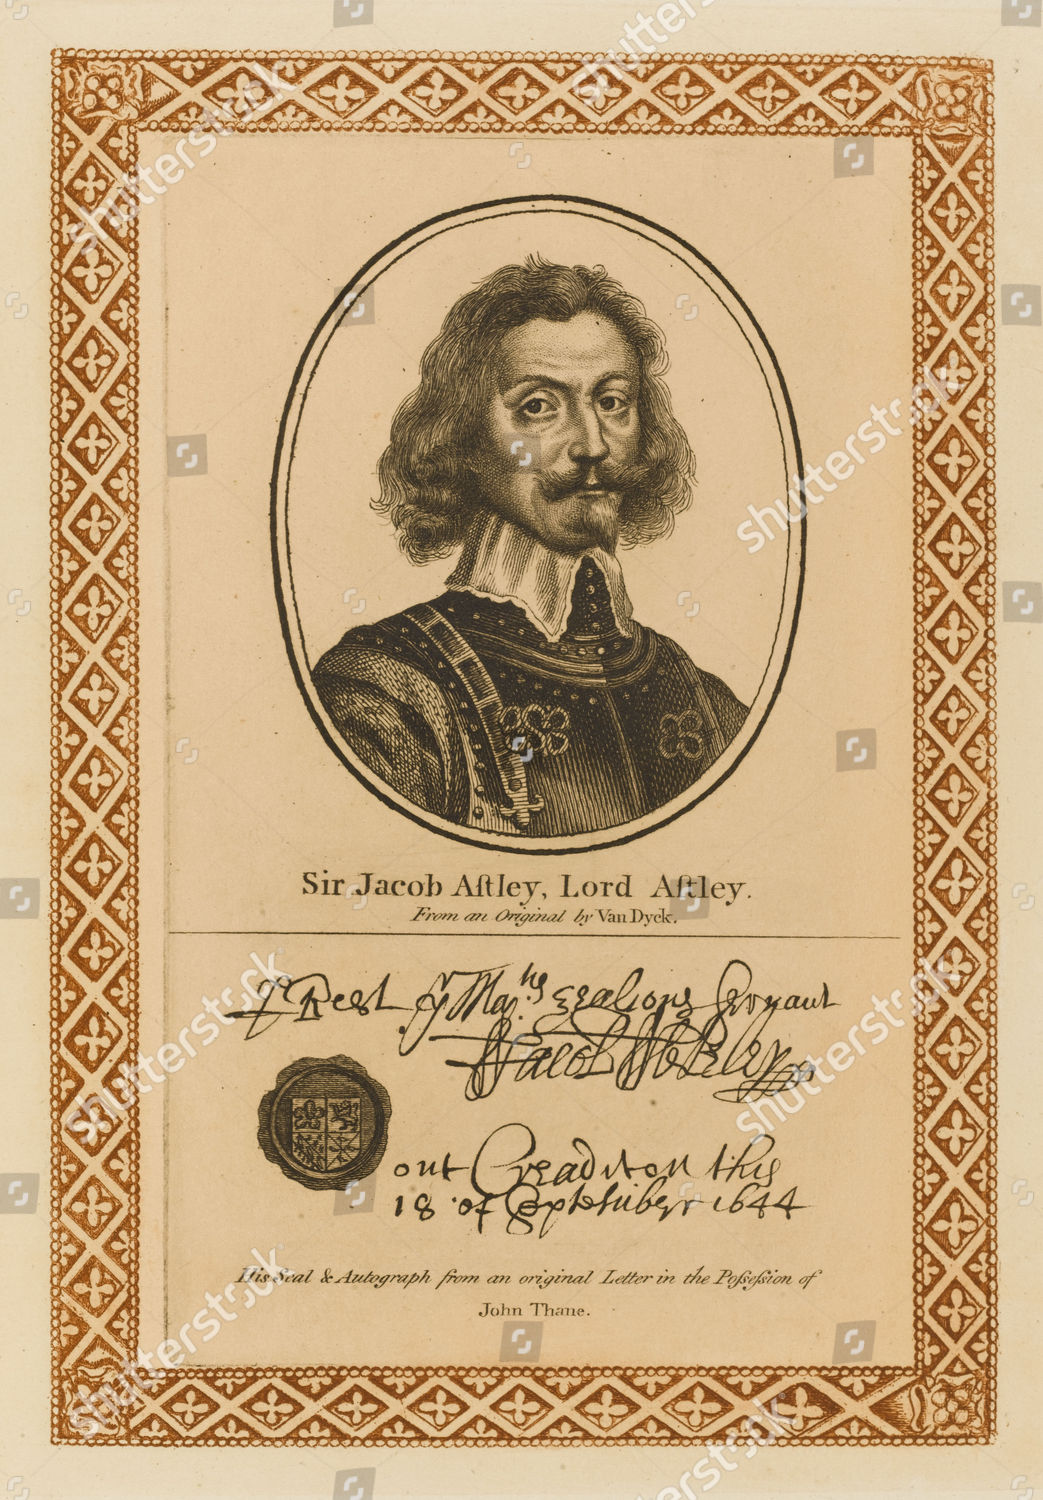 Sir Jacob Aſtley, Lord Aſtley.
From an Original by Van Dyck.
I Rest yr Maties zealious Servant
Jacob Astley
out Creaditon this
18 of September 1644
His Seal & Autograph from an original Letter in the Poſseſsion of
John Thane.
shutterstock
shutterstock
shutterstock
shutterstock
shutterstock
shutterstock
shutterstock